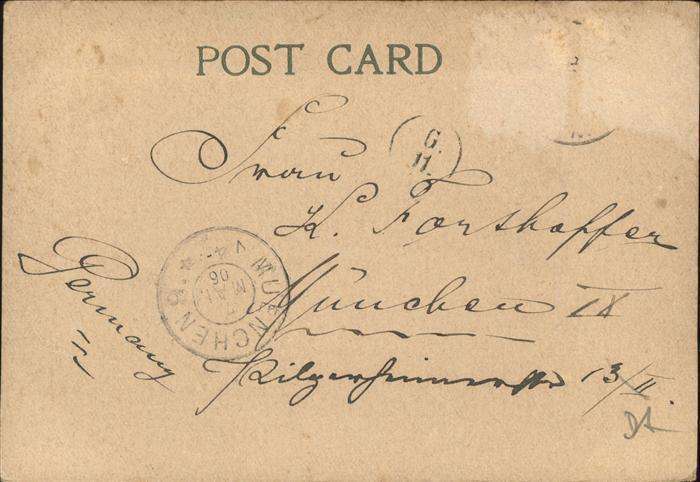 POST CARD
G.
11.
Frau
K. Forshoffer
München IX
Pilgersheimerstr 13/II.
Germany
MUENCHEN 9
MAI
06
V 4-